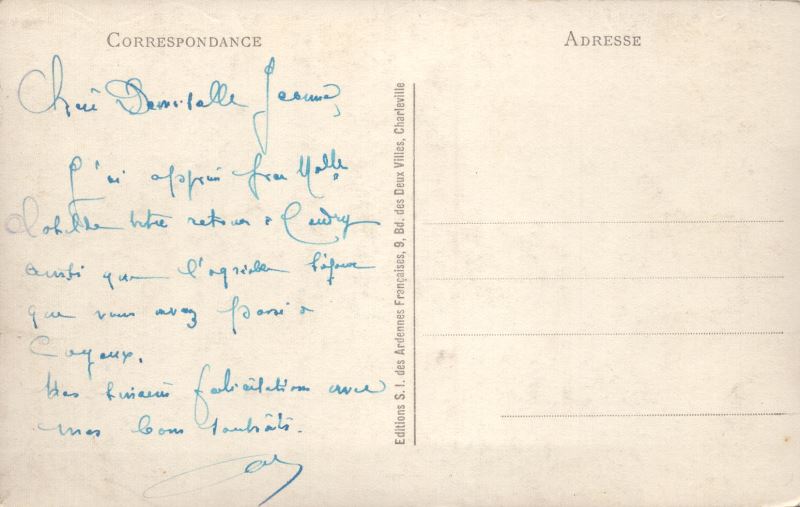 CORRESPONDANCE
ADRESSE
Chère Demoiselle Jeanne,
J'ai appris par Melle
Clotilde votre retour à Caudry
ainsi que l'agréable séjour
que vous avez passé à
Cayeux.
Mes sincères félicitations avec
mes bons souhaits.
Editions S. I. des Ardennes Françaises, 9, Bd. des Deux Villes, Charleville